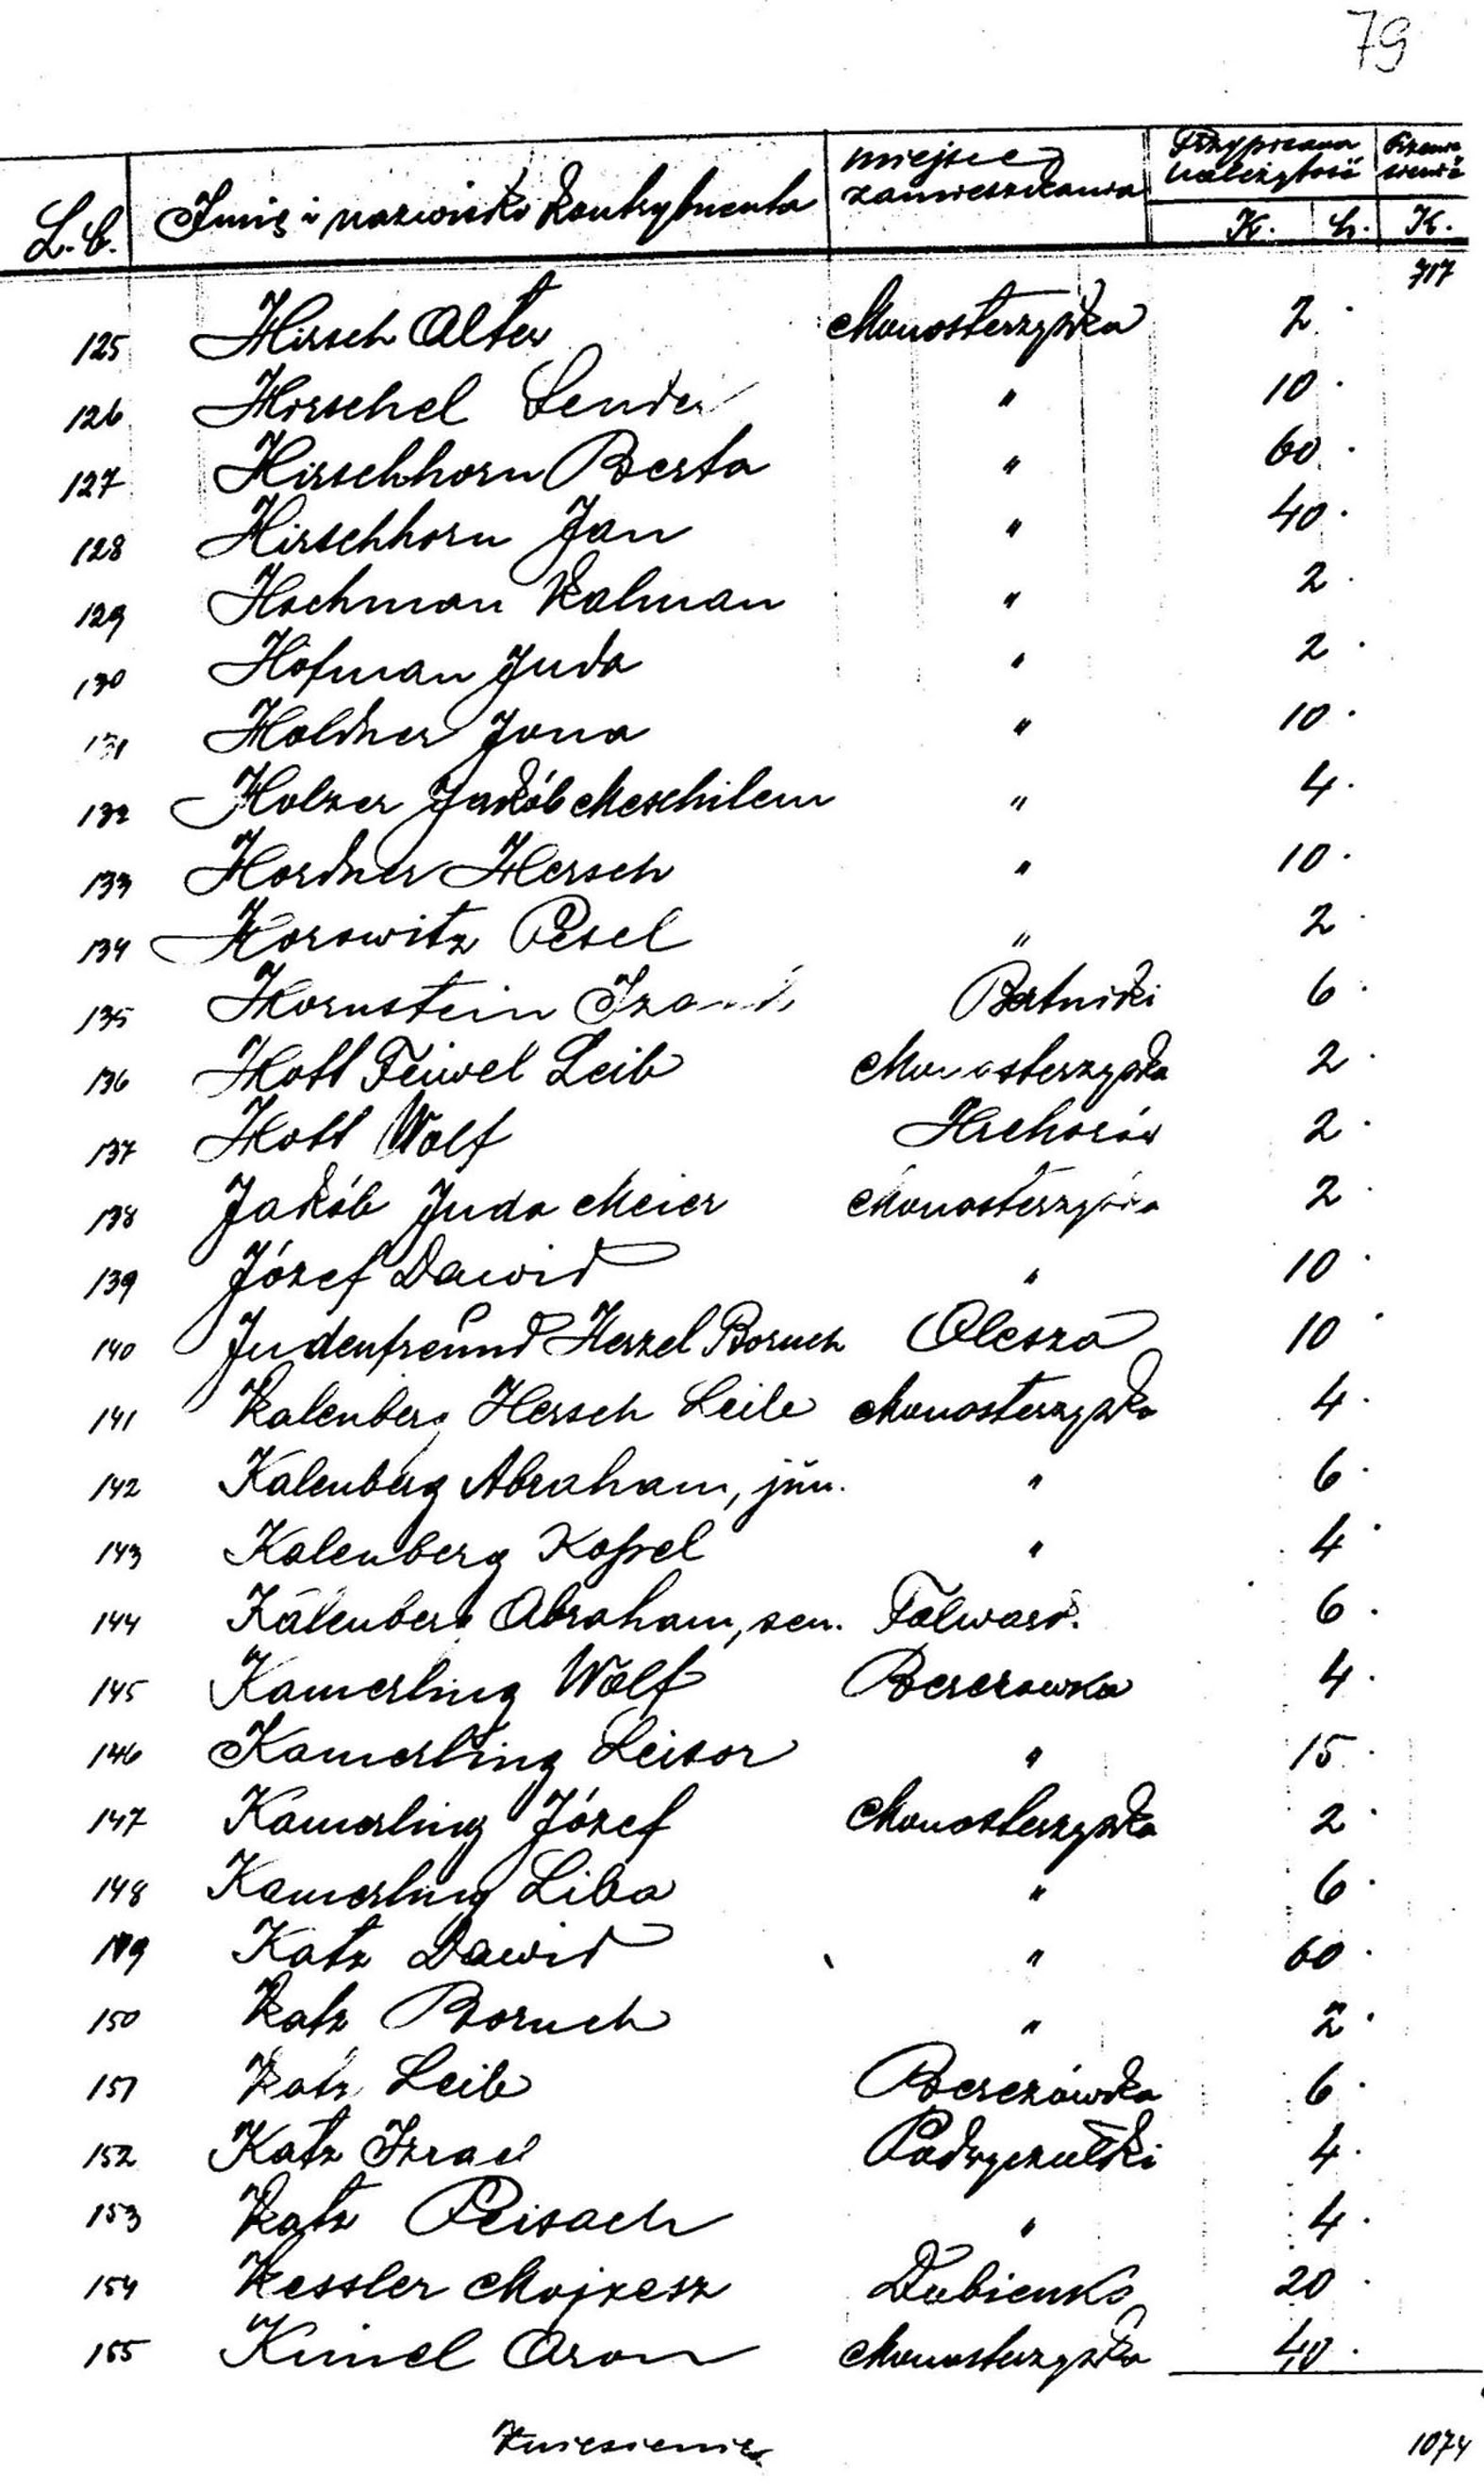 79
L.b. Imię i nazwisko kontrybuenta miejsce zamieszkania Przypisana należytość K. h. K.
717
125 Hirsch Alter Monasterzyska 2 ·
126 Hirschel Sender " 10 ·
127 Hirschhorn Berta " 60 ·
128 Hirschhorn Jan " 40 ·
129 Hochman Kalman " 2 ·
130 Hofman Juda " 2 ·
131 Holdner Jona " 10 ·
132 Holzer Jakób Meschilem " 4 ·
133 Hordner Hersch " 10 ·
134 Horowitz Pesel " 2 ·
135 Hornstein Bertniki 6 ·
136 Hott Feiwel Leib Monasterzyska 2 ·
137 Hott Wolf Hrehorów 2 ·
138 Jakób Juda Meier Monasterzyska 2 ·
139 Józef Dawid " 10 ·
140 Judenfreund Herzel Boruch Olesza 10 ·
141 Kalenberg Hersch Leib Monasterzyska 4 ·
142 Kalenberg Abraham, jun. " 6 ·
143 Kalenberg Koppel " 4 ·
144 Kalenberg Abraham, sen. Folwark. 6 ·
145 Kamerling Wolf Berezowka 4 ·
146 Kamerling Leisor " 15 ·
147 Kamerling Józef Monasterzyska 2 ·
148 Kamerling Liba " 6 ·
149 Katz Dawid " 60 ·
150 Katz Boruch " 2 ·
151 Katz Leib Berezówka 6 ·
152 Katz Izrael 4 ·
153 Katz Peisach " 4 ·
154 Kessler Mojżesz Dubienko 20 ·
155 Kimel Aron Monasterzyska 40 ·
1074